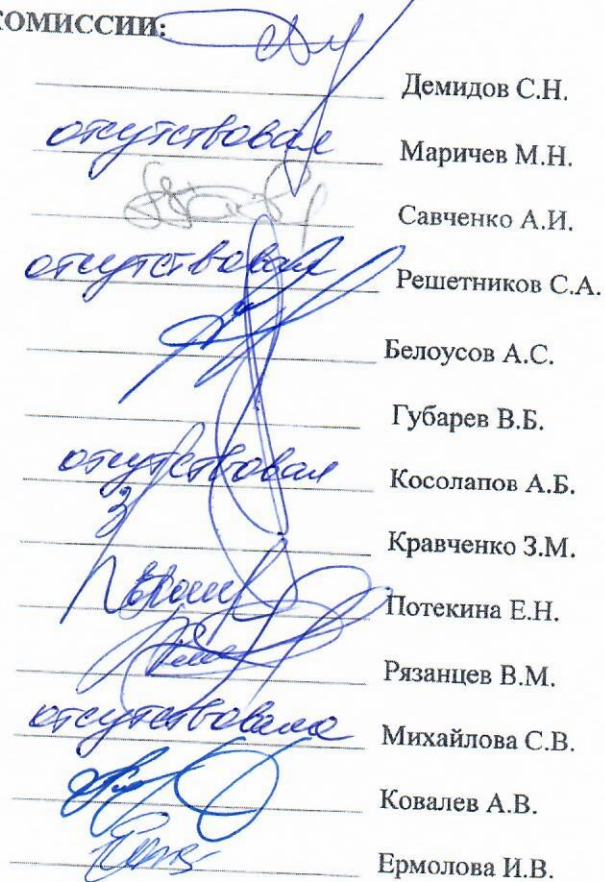 КОМИССИИ:
Демидов С.Н.
отсутствовал Маричев М.Н.
Савченко А.И.
отсутствовал Решетников С.А.
Белоусов А.С.
Губарев В.Б.
отсутствовал Косолапов А.Б.
Кравченко З.М.
Потекина Е.Н.
Рязанцев В.М.
отсутствовала Михайлова С.В.
Ковалев А.В.
Ермолова И.В.